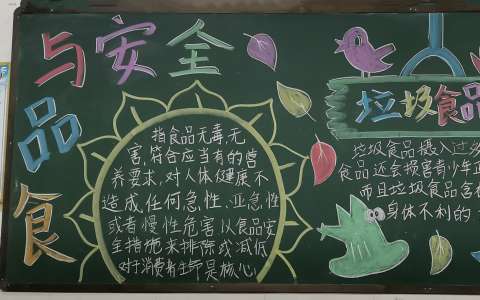 与安全
品
食
指食品无毒，无
害，符合应当有的营
养要求，对人体健康不
造成任何急性、亚急性
或者慢性危害以食品安
全措施来排除或减低
对于消费者生命是核心
垃圾食品
垃圾食品摄入过
食品还会损害青少年正
而且垃圾食品含
身体不利的